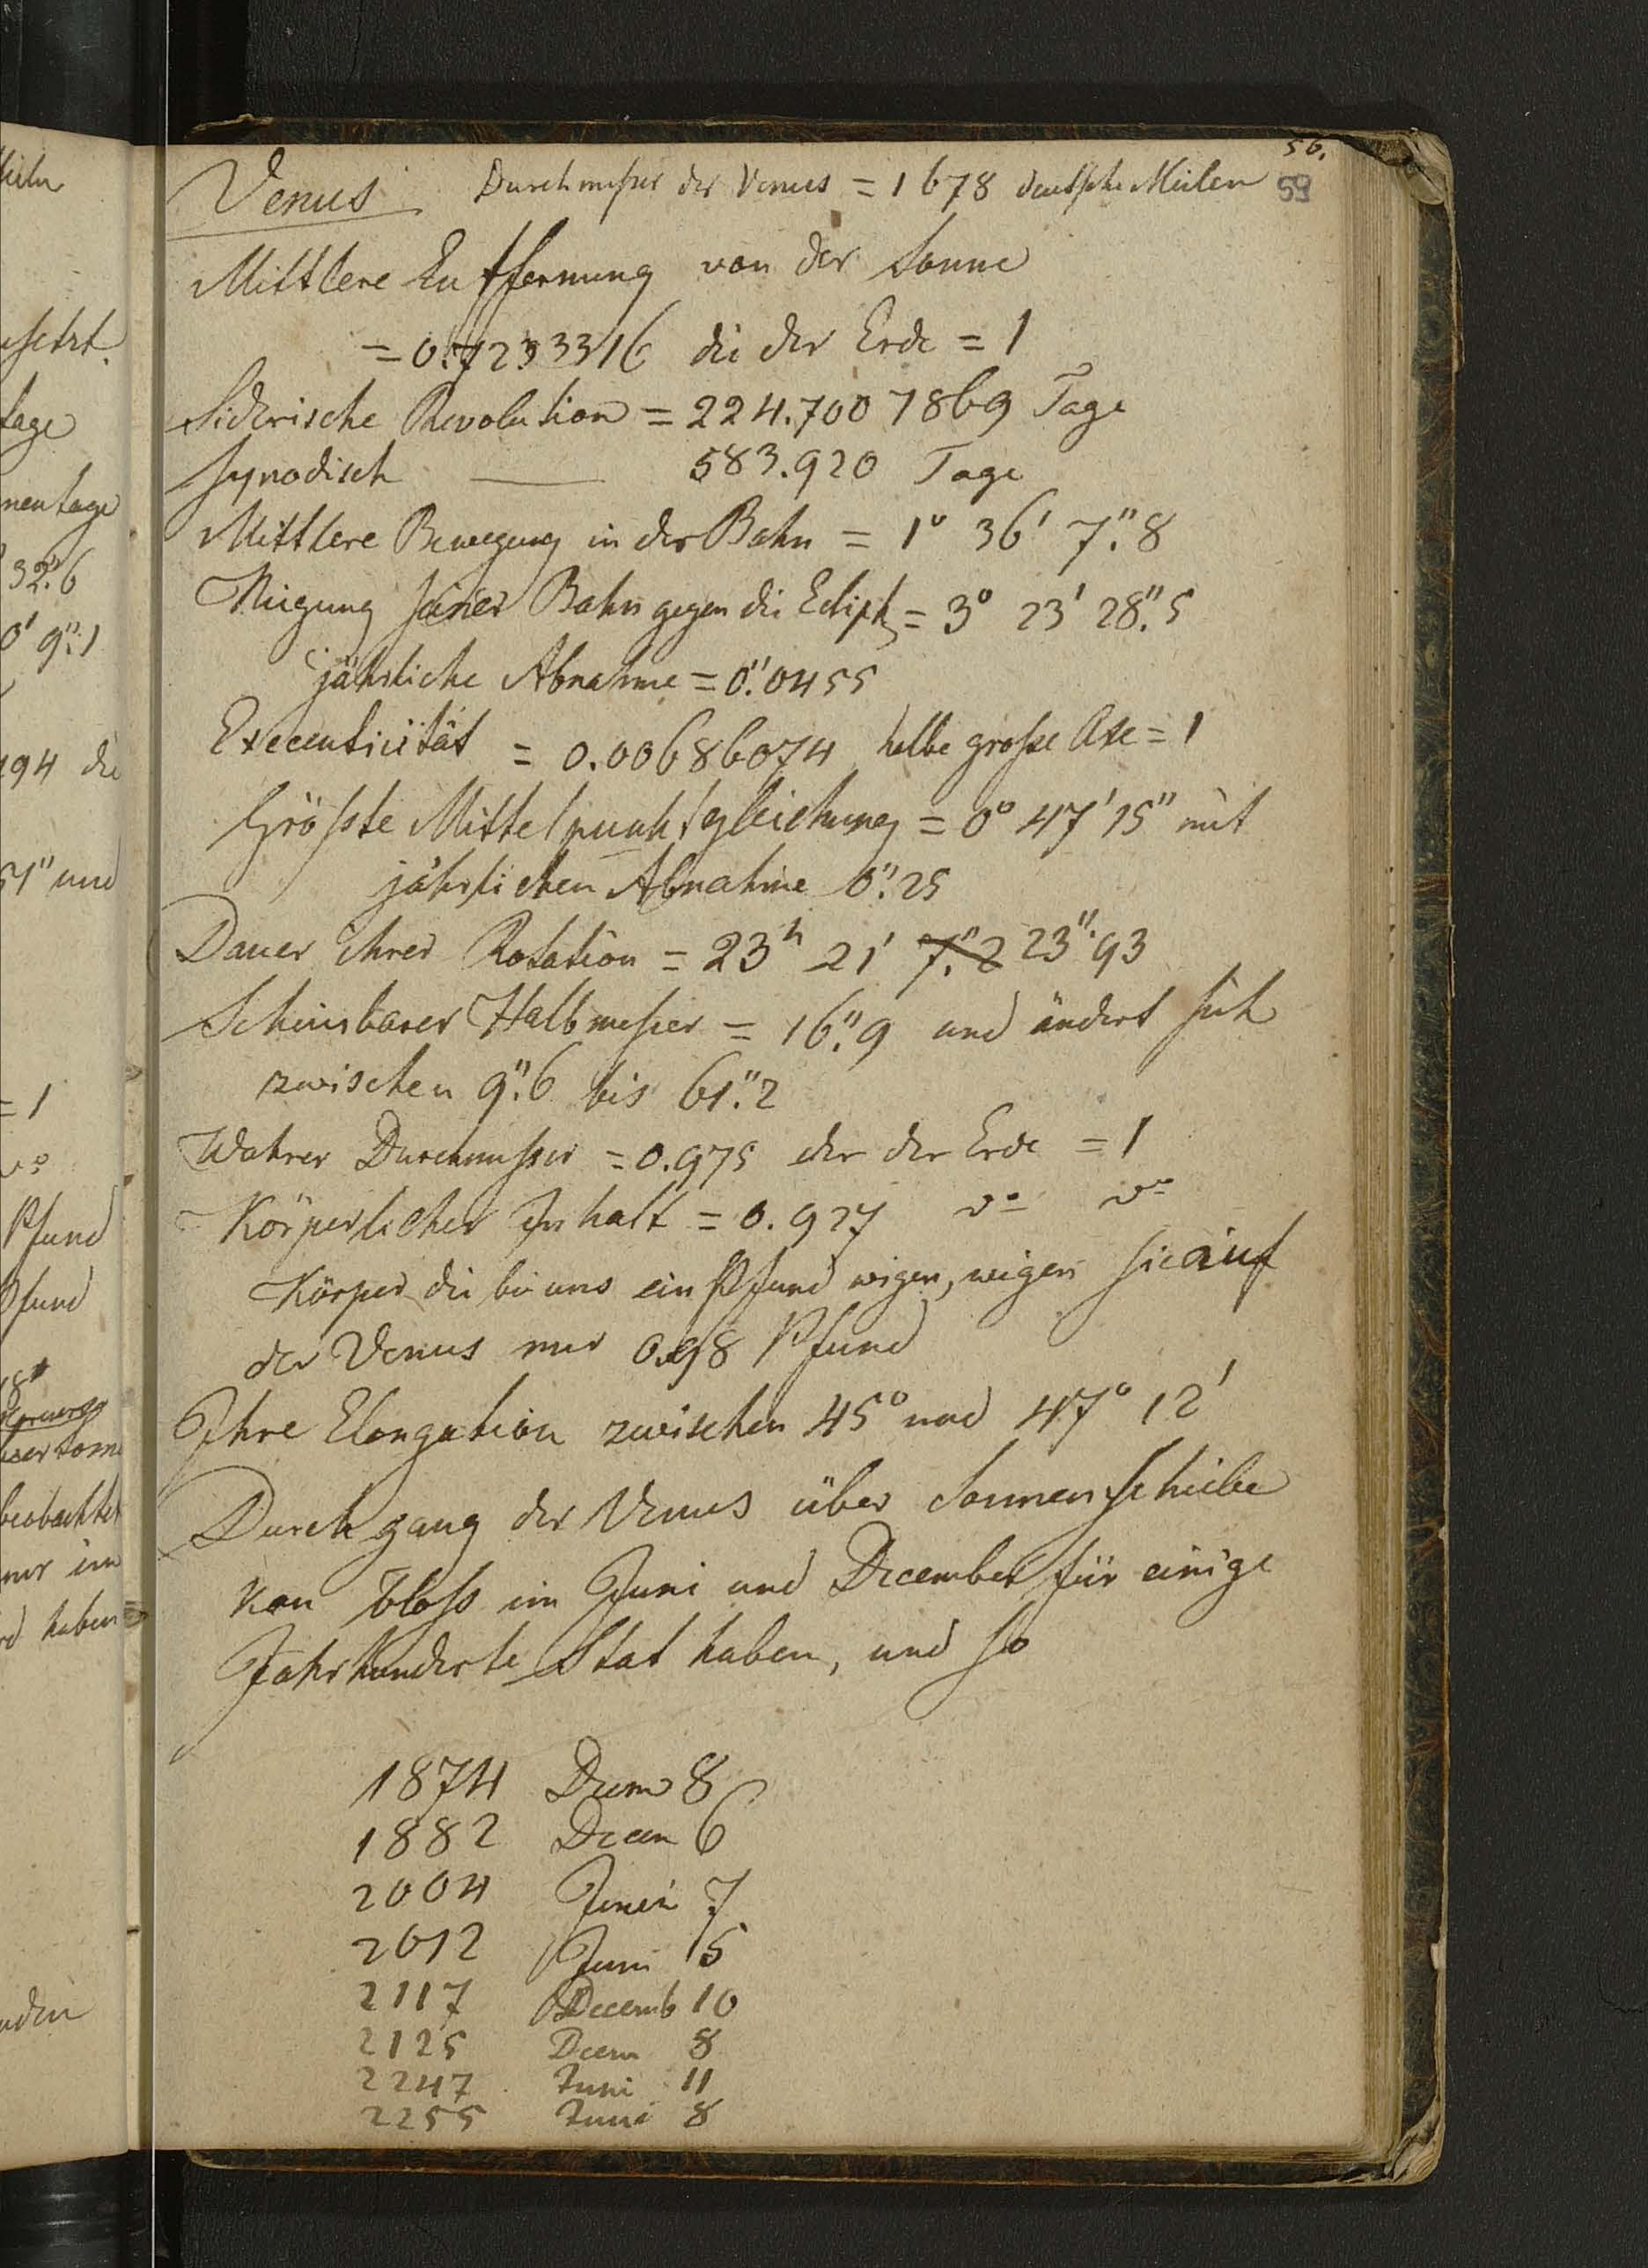 56.
59
Venus Durchmeßer der Venus = 1678 deutsche Meilen
Mittlere Entfernung von der Sonne
= 0.7233316 die der Erde = 1
Siderische Revolution = 224.7007869 Tage
Synodisch — 583.920 Tage
Mittlere Bewegung in der Bahn = 1° 36' 7."8
Neigung seiner Bahn gegen die Eclipt = 3° 23' 28."5
jährliche Abnahme = 0."0455
Excentricität = 0.00686074 halbe große Axe = 1
Größte Mittelpunktsgleichung = 0° 47' 15" mit
jährlichen Abnahme 0".25
Dauer ihrer Rotation = 23h 21' 7."2 23".93
Scheinbarer Halbmeßer = 16."9 und ändert sich
zwischen 9."6 bis 61."2
Wahrer Durchmeßer = 0.975 der der Erde = 1
Körperlicher Inhalt = 0.927 do do
Körper die bei uns ein Pfund wigen, wigen sie auf
der Venus nur 0.98 Pfund
Ihre Elongation zwischen 45° und 47° 12'
Durchgang der Venus über Sonnenscheibe
kan bloß im Juni und December für einige
Jahrhunderte Stat haben, und so
1874 Decem 8
1882 Decem 6
2004 Juni 7
2012 Juni 5
2117 Decemb 10
2125 Decem 8
2247 Juni 11
2255 Juni 8
tage
32."6
0' 9".1
194 die
51" und
= 1
do
Pfund
Pfund
beobachtet
nur im
haben